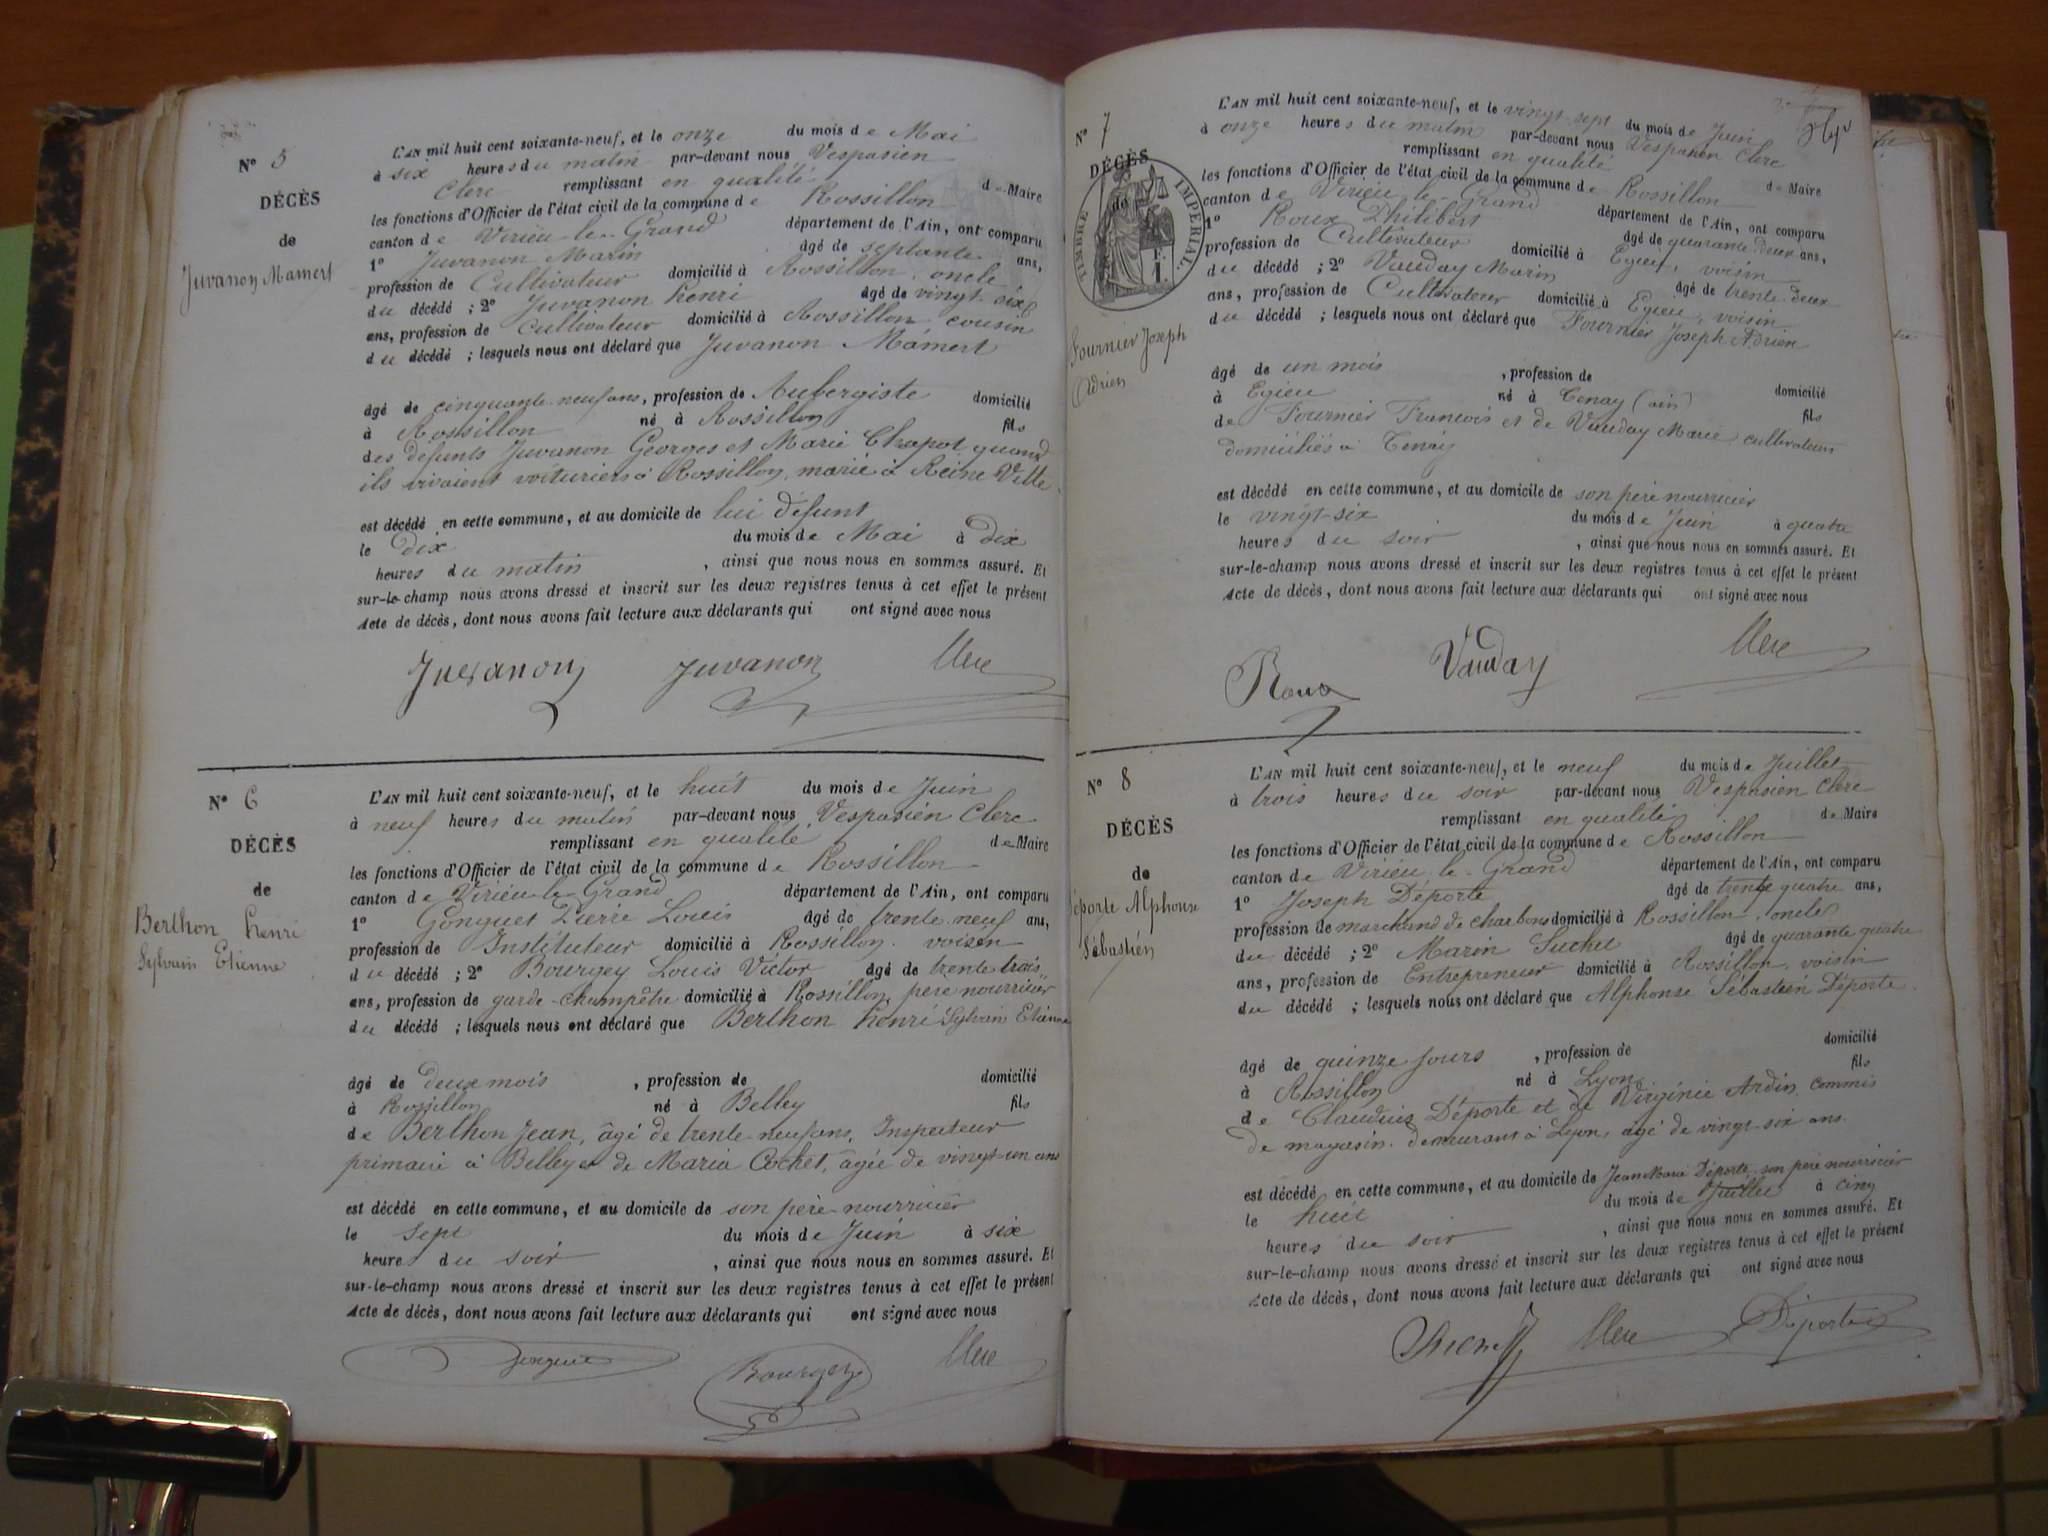 N° 5
DÉCÈS
de
Juvanon Mamert
L'AN mil huit cent soixante-neuf, et le onze du mois de Mai
à six heures du matin par-devant nous Vespasien
Clerc remplissant en qualité de Maire
les fonctions d'Officier de l'état civil de la commune de Rossillon
canton de Virieu-le-Grand département de l'Ain, ont comparu
1° Juvanon Marin âgé de septante ans,
profession de Cultivateur domicilié à Rossillon, oncle
du décédé ; 2° Juvanon henri âgé de vingt-six
ans, profession de cultivateur domicilié à Rossillon, cousin
du décédé ; lesquels nous ont déclaré que Juvanon Mamert
âgé de cinquante-neuf ans, profession de Aubergiste domicilié
à Rossillon né à Rossillon fils
des defunts Juvanon Georges et Marie Chapot quand
ils vivaient voituriers à Rossillon, marié à Reine Vette
est décédé en cette commune, et au domicile de lui défunt
le dix du mois de Mai à dix
heures du matin, ainsi que nous nous en sommes assuré. Et
sur-le-champ nous avons dressé et inscrit sur les deux registres tenus à cet effet le présent
Acte de décès, dont nous avons fait lecture aux déclarants qui ont signé avec nous
Juvanon Juvanon Clerc
N° 6
DÉCÈS
de
Berthon henri
Sylvain Etienne
L'AN mil huit cent soixante-neuf, et le huit du mois de Juin
à neuf heures du matin par-devant nous Vespasien Clerc
remplissant en qualité de Maire
les fonctions d'Officier de l'état civil de la commune de Rossillon
canton de Virieu-le-Grand département de l'Ain, ont comparu
1° Gonguet Pierre Louis âgé de trente-neuf ans,
profession de Instituteur domicilié à Rossillon, voisin
du décédé ; 2° Bourgey Louis Victor âgé de trente trois
ans, profession de garde-champêtre domicilié à Rossillon, père nourricier
du décédé ; lesquels nous ont déclaré que Berthon henri Sylvain Etienne
âgé de deux mois, profession de domicilié
à Rossillon né à Belley fils
de Berthon Jean, âgé de trente-neuf ans, Inspecteur
primaire à Belley et de Maria Cochet, âgée de vingt-un ans
est décédé en cette commune, et au domicile de son père nourricier
le sept du mois de Juin à six
heures du soir, ainsi que nous nous en sommes assuré. Et
sur-le-champ nous avons dressé et inscrit sur les deux registres tenus à cet effet le présent
Acte de décès, dont nous avons fait lecture aux déclarants qui ont signé avec nous
Gonguet Bourgey Clerc
N° 7
DÉCÈS
de
TIMBRE IMPÉRIAL.
1 F.
Fournier Joseph
Adrien
L'AN mil huit cent soixante-neuf, et le vingt-sept du mois de Juin
à onze heures du matin par-devant nous Vespasien Clerc
remplissant en qualité de Maire
les fonctions d'Officier de l'état civil de la commune de Rossillon
canton de Virieu-le-Grand département de l'Ain, ont comparu
1° Roux Philibert âgé de quarante deux ans,
profession de Cultivateur domicilié à Egieu, voisin
du décédé ; 2° Vauday Marin âgé de trente-deux
ans, profession de Cultivateur domicilié à Egieu, voisin
du décédé ; lesquels nous ont déclaré que Fournier Joseph Adrien
âgé de un mois, profession de domicilié
à Egieu né à Tenay (ain) fils
de Fournier Francois et de Vauday Marie cultivateurs
domiciliés à Tenay
est décédé en cette commune, et au domicile de son père nourricier
le vingt-six du mois de Juin à quatre
heures du soir, ainsi que nous nous en sommes assuré. Et
sur-le-champ nous avons dressé et inscrit sur les deux registres tenus à cet effet le présent
Acte de décès, dont nous avons fait lecture aux déclarants qui ont signé avec nous
Roux Vauday Clerc
N° 8
DÉCÈS
de
Déporte Alphonse
Sébastien
L'AN mil huit cent soixante-neuf, et le neuf du mois de Juillet
à trois heures du soir par-devant nous Vespasien Clerc
remplissant en qualité de Maire
les fonctions d'Officier de l'état civil de la commune de Rossillon
canton de Virieu-le-Grand département de l'Ain, ont comparu
1° Joseph Déporte âgé de trente quatre ans,
profession de marchand de charbons domicilié à Rossillon, oncle
du décédé ; 2° Marin Suchet âgé de quarante quatre
ans, profession de Entrepreneur domicilié à Rossillon, voisin
du décédé ; lesquels nous ont déclaré que Alphonse Sébastien Déporte
âgé de quinze jours, profession de domicilié
à Rossillon né à Lyon fils
de Claudius Déporte et de Virginie Ardin, commis
de magasin demeurant à Lyon, agé de vingt-six ans
est décédé en cette commune, et au domicile de Jean Marie Déporte son père nourricier
le huit du mois de Juillet à cinq
heures du soir, ainsi que nous nous en sommes assuré. Et
sur-le-champ nous avons dressé et inscrit sur les deux registres tenus à cet effet le présent
Acte de décès, dont nous avons fait lecture aux déclarants qui ont signé avec nous
Suchet Clerc Déporte